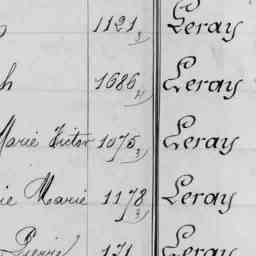 1121 3/ Leray
h 1686 4/ Leray
Marie Victor 1075 3/ Leray
ie Marie 1178 3/ Leray
Pierre 171 Leray